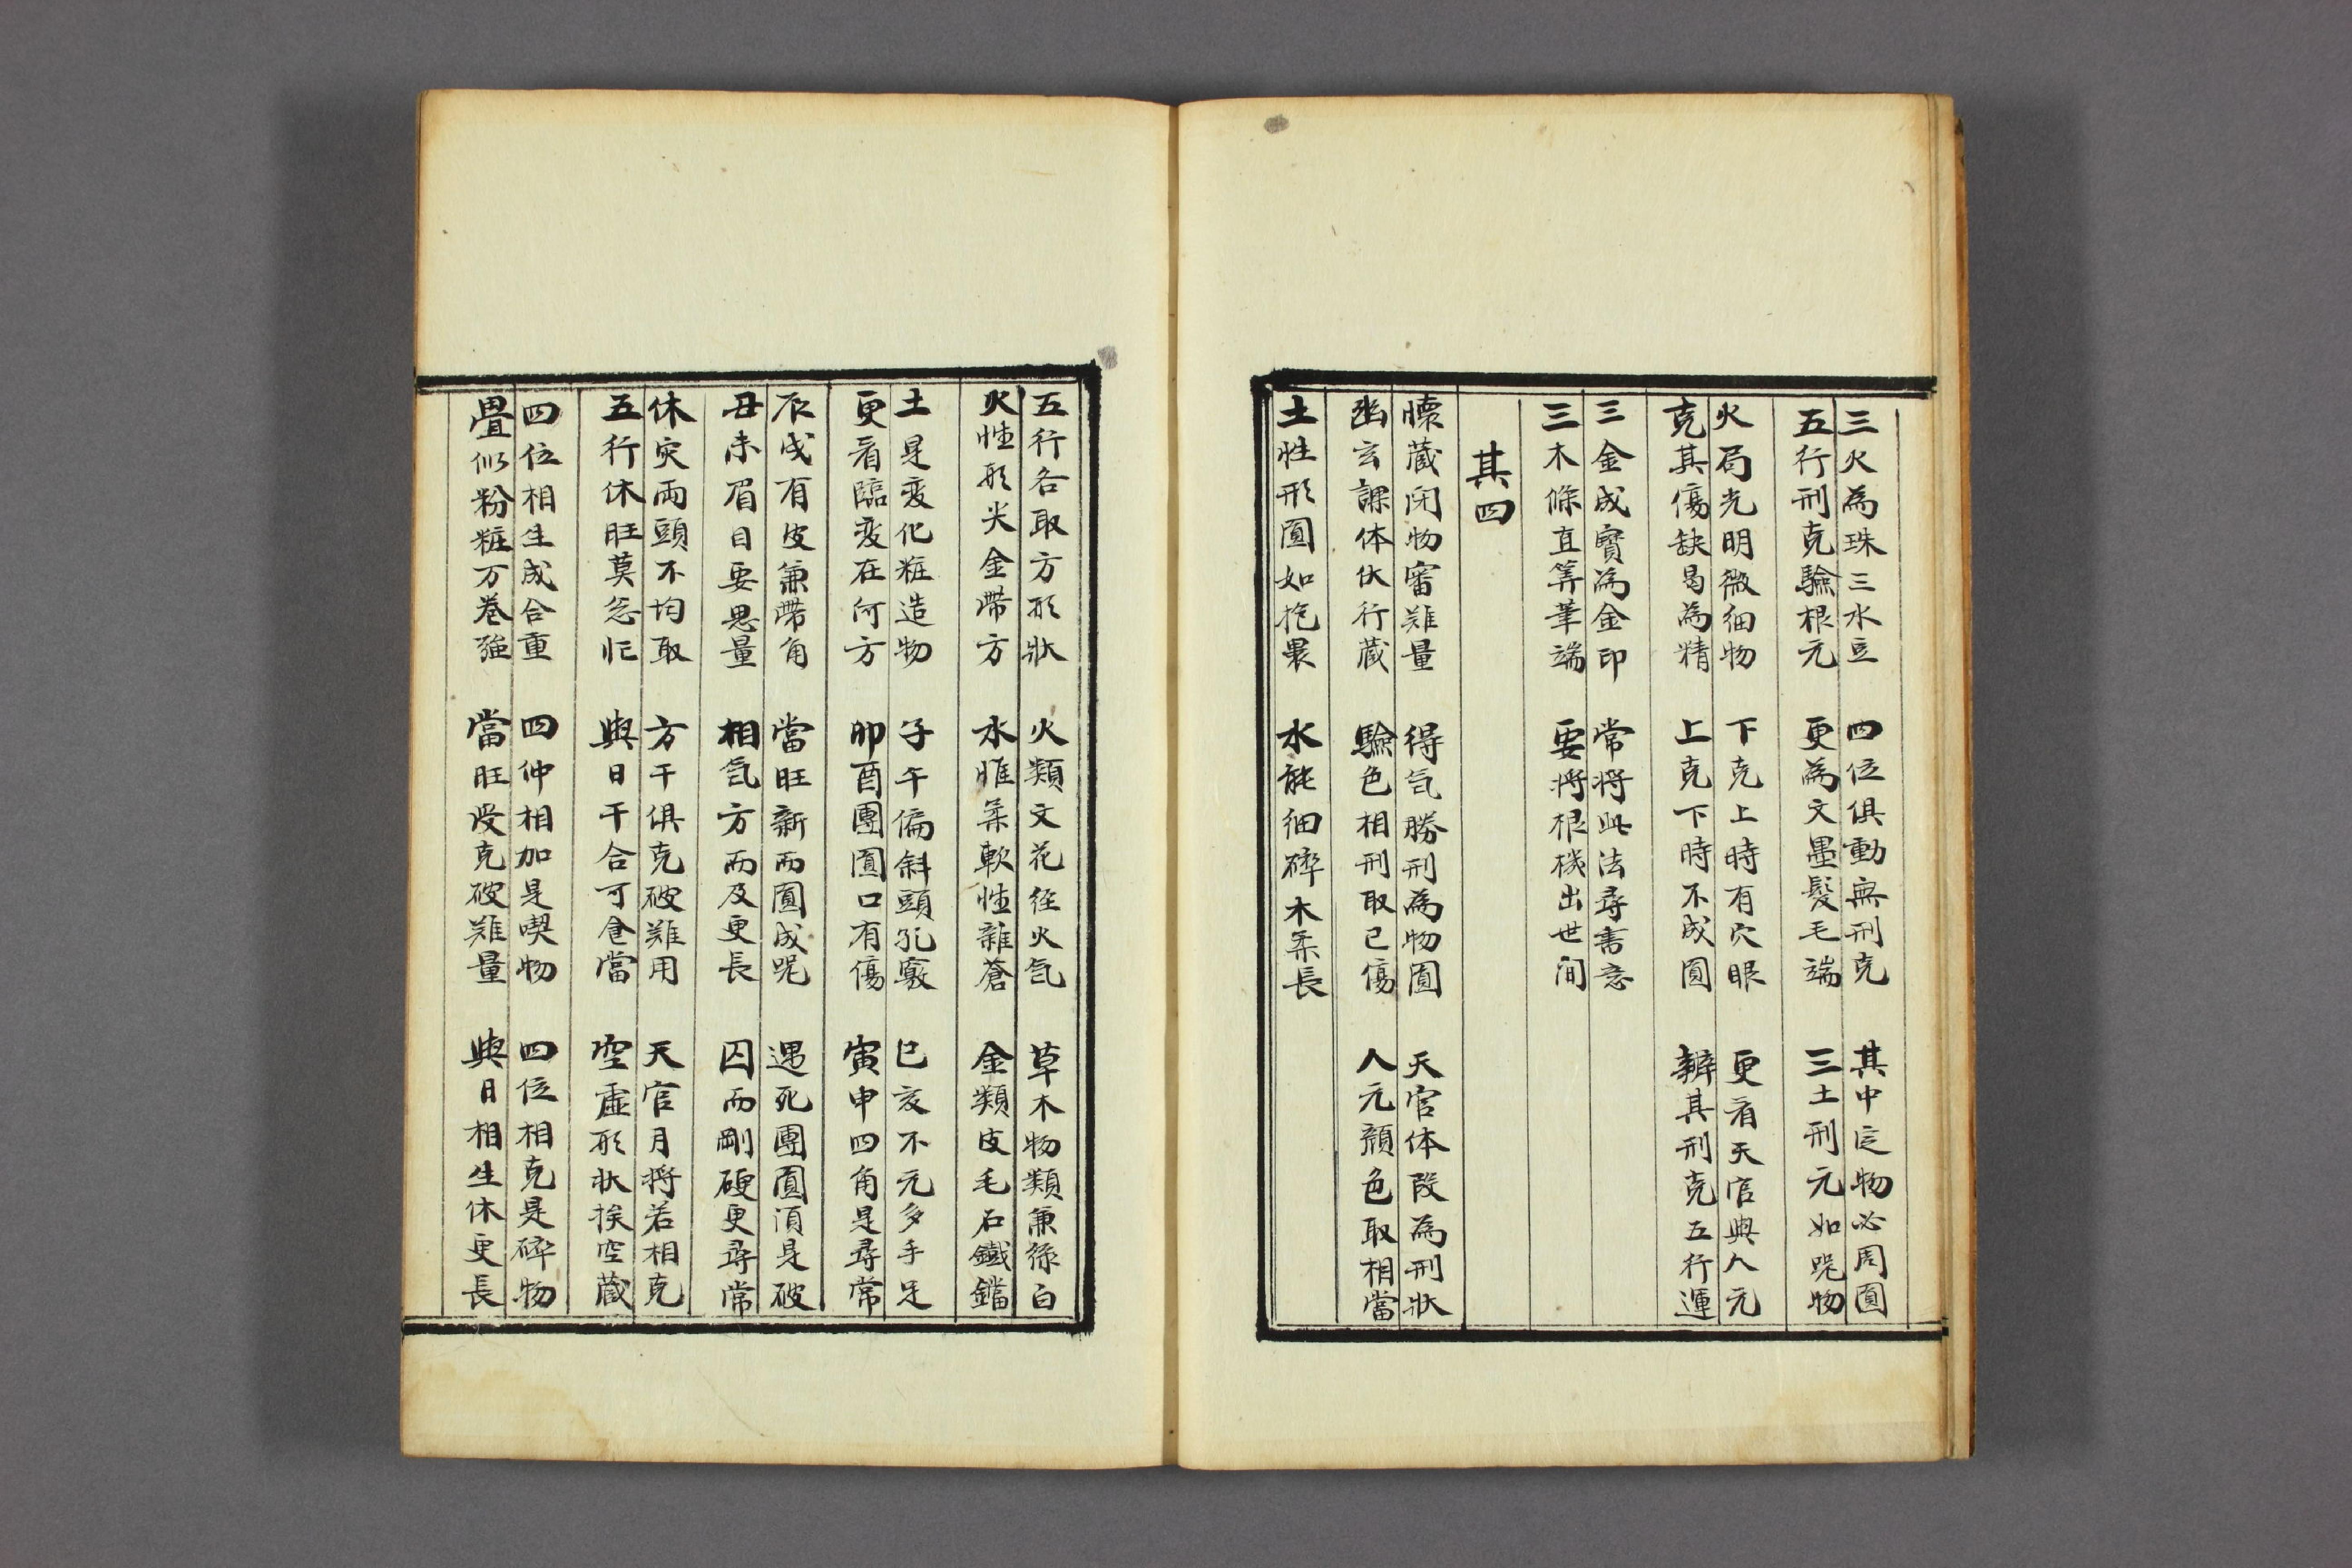 三火為珠三水豆　四位俱動無刑克　其中定物必周圓
五行刑克驗根元　更為文墨髮毛端　三土刑元如咒物
火局光明微細物　下克上時有穴眼　更看天官與人元
克其傷缺曷為精　上克下時不成圓　辨其刑克五行運
三金成寶為金印　常將此法尋書意
三木條直筭筆端　要將根機出世間
其四
懷藏閉物審難量　得気勝刑為物圓　天官体段為刑狀
幽玄課体伏行蔵　驗色相刑取已傷　人元顏色取相當
土性形圓如抱裹　水能細碎木柔長
五行各取方形狀　火類文花経火気　草木物類兼綠白
火性形尖金帶方　水惟柔軟性雜蒼　金類皮毛石鐵鐺
土是変化粧造物　子午偏斜頭孔竅　巳亥不元多手足
更看臨変在何方　卯酉團圓口有傷　寅申四角是尋常
辰戌有皮兼帶角　當旺新而圓成咒　遇死團圓須是破
丑未眉目要思量　相気方而及更長　囚而剛硬更尋常
休灾兩頭不均取　方干俱克破難用　天官月將若相克
五行休旺莫忩忙　與日干合可倉當　空虛形狀挨空蔵
四位相生成合重　四仲相加是喫物　四位相克是碎物
畳似粉粧万卷強　當旺受克破難量　與日相生休更長